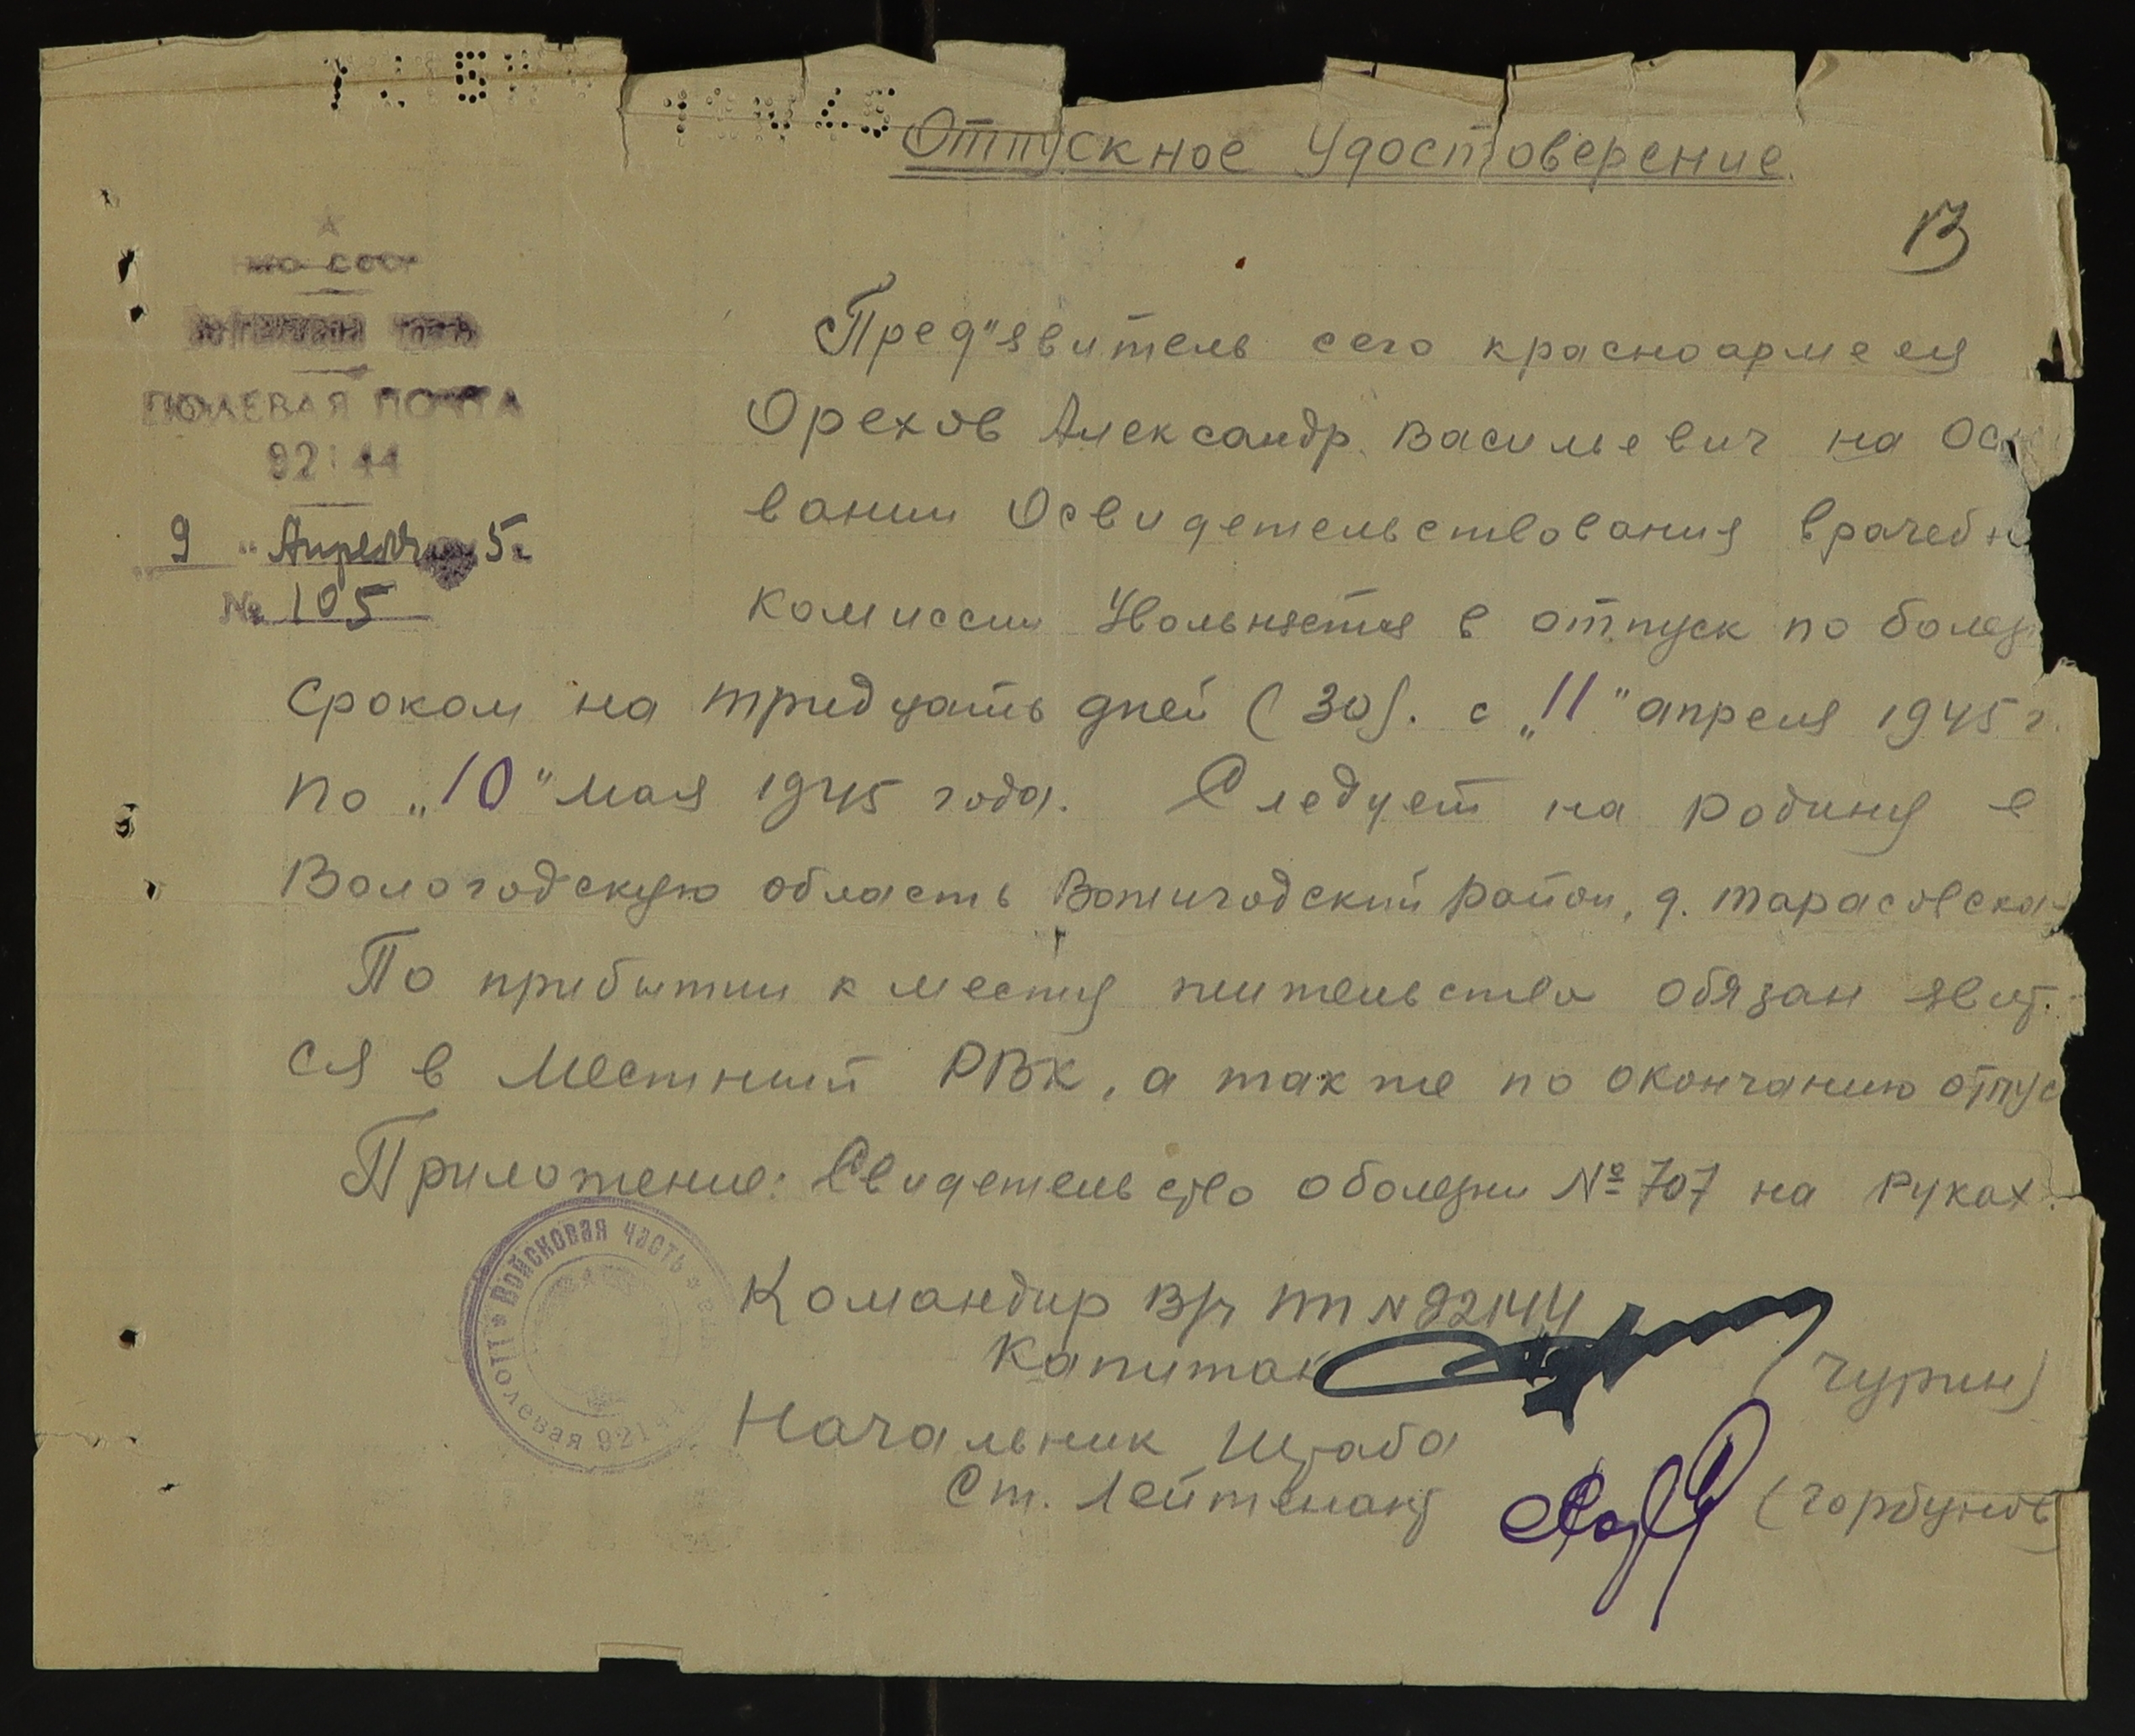 Отпускное Удостоверение.
13
ПОЛЕВАЯ ПОЧТА
92144
9 " Апреля 5г
№ 105
Пред"явитель сего красноармеец
Орехов Александр Васильевич на Осн
вании Освидетельствования врачебн
комиссии Увольняется в отпуск по болез
сроком на тридцать дней (30). с „11" апреля 1945 г.
по „10" мая 1945 года. Следует на родину в
Вологодскую область Вожегодский район, д. Тарасовская
По прибытии к месту жительства обязан явит.
ся в Местный РВК, а также по окончанию отпус
Приложение: Свидетельство о болезни № 707 на руках.
Войсковая часть
полевая 92144
Командир В/ч пп N 92144
Капитан (Чурин)
Начальник Штаба
Ст. Лейтенант (Горбунов)